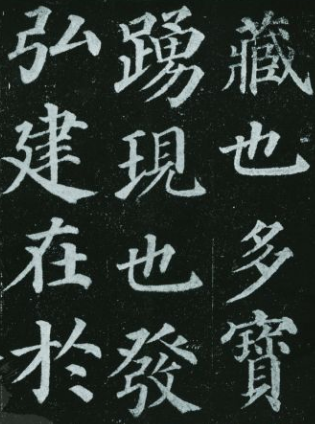 藏也多寶
踴現也發
弘建在於